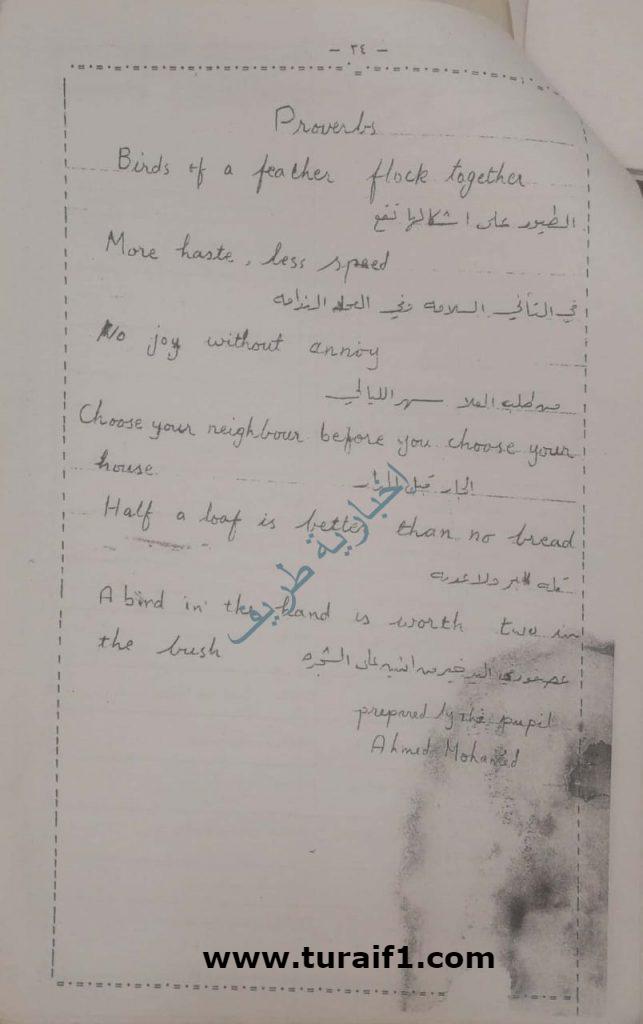 - ٢٤ -
Proverbs
Birds of a feather flock together
الطيور على اشكالها تقع
More haste, less speed
في التأني السلامه وفي العجله الندامه
No joy without annoy
من طلب العلا سهر الليالي
Choose your neighbour before you choose your
house
الجار قبل الدار
Half a loaf is better than no bread
ولا عدمه
A bird in the hand is worth two in
the bush
عصفور في اليد خير من اثنين على الشجره
prepared by the pupil
Ahmed Mohamed
اخبارية طريف
www.turaif1.com